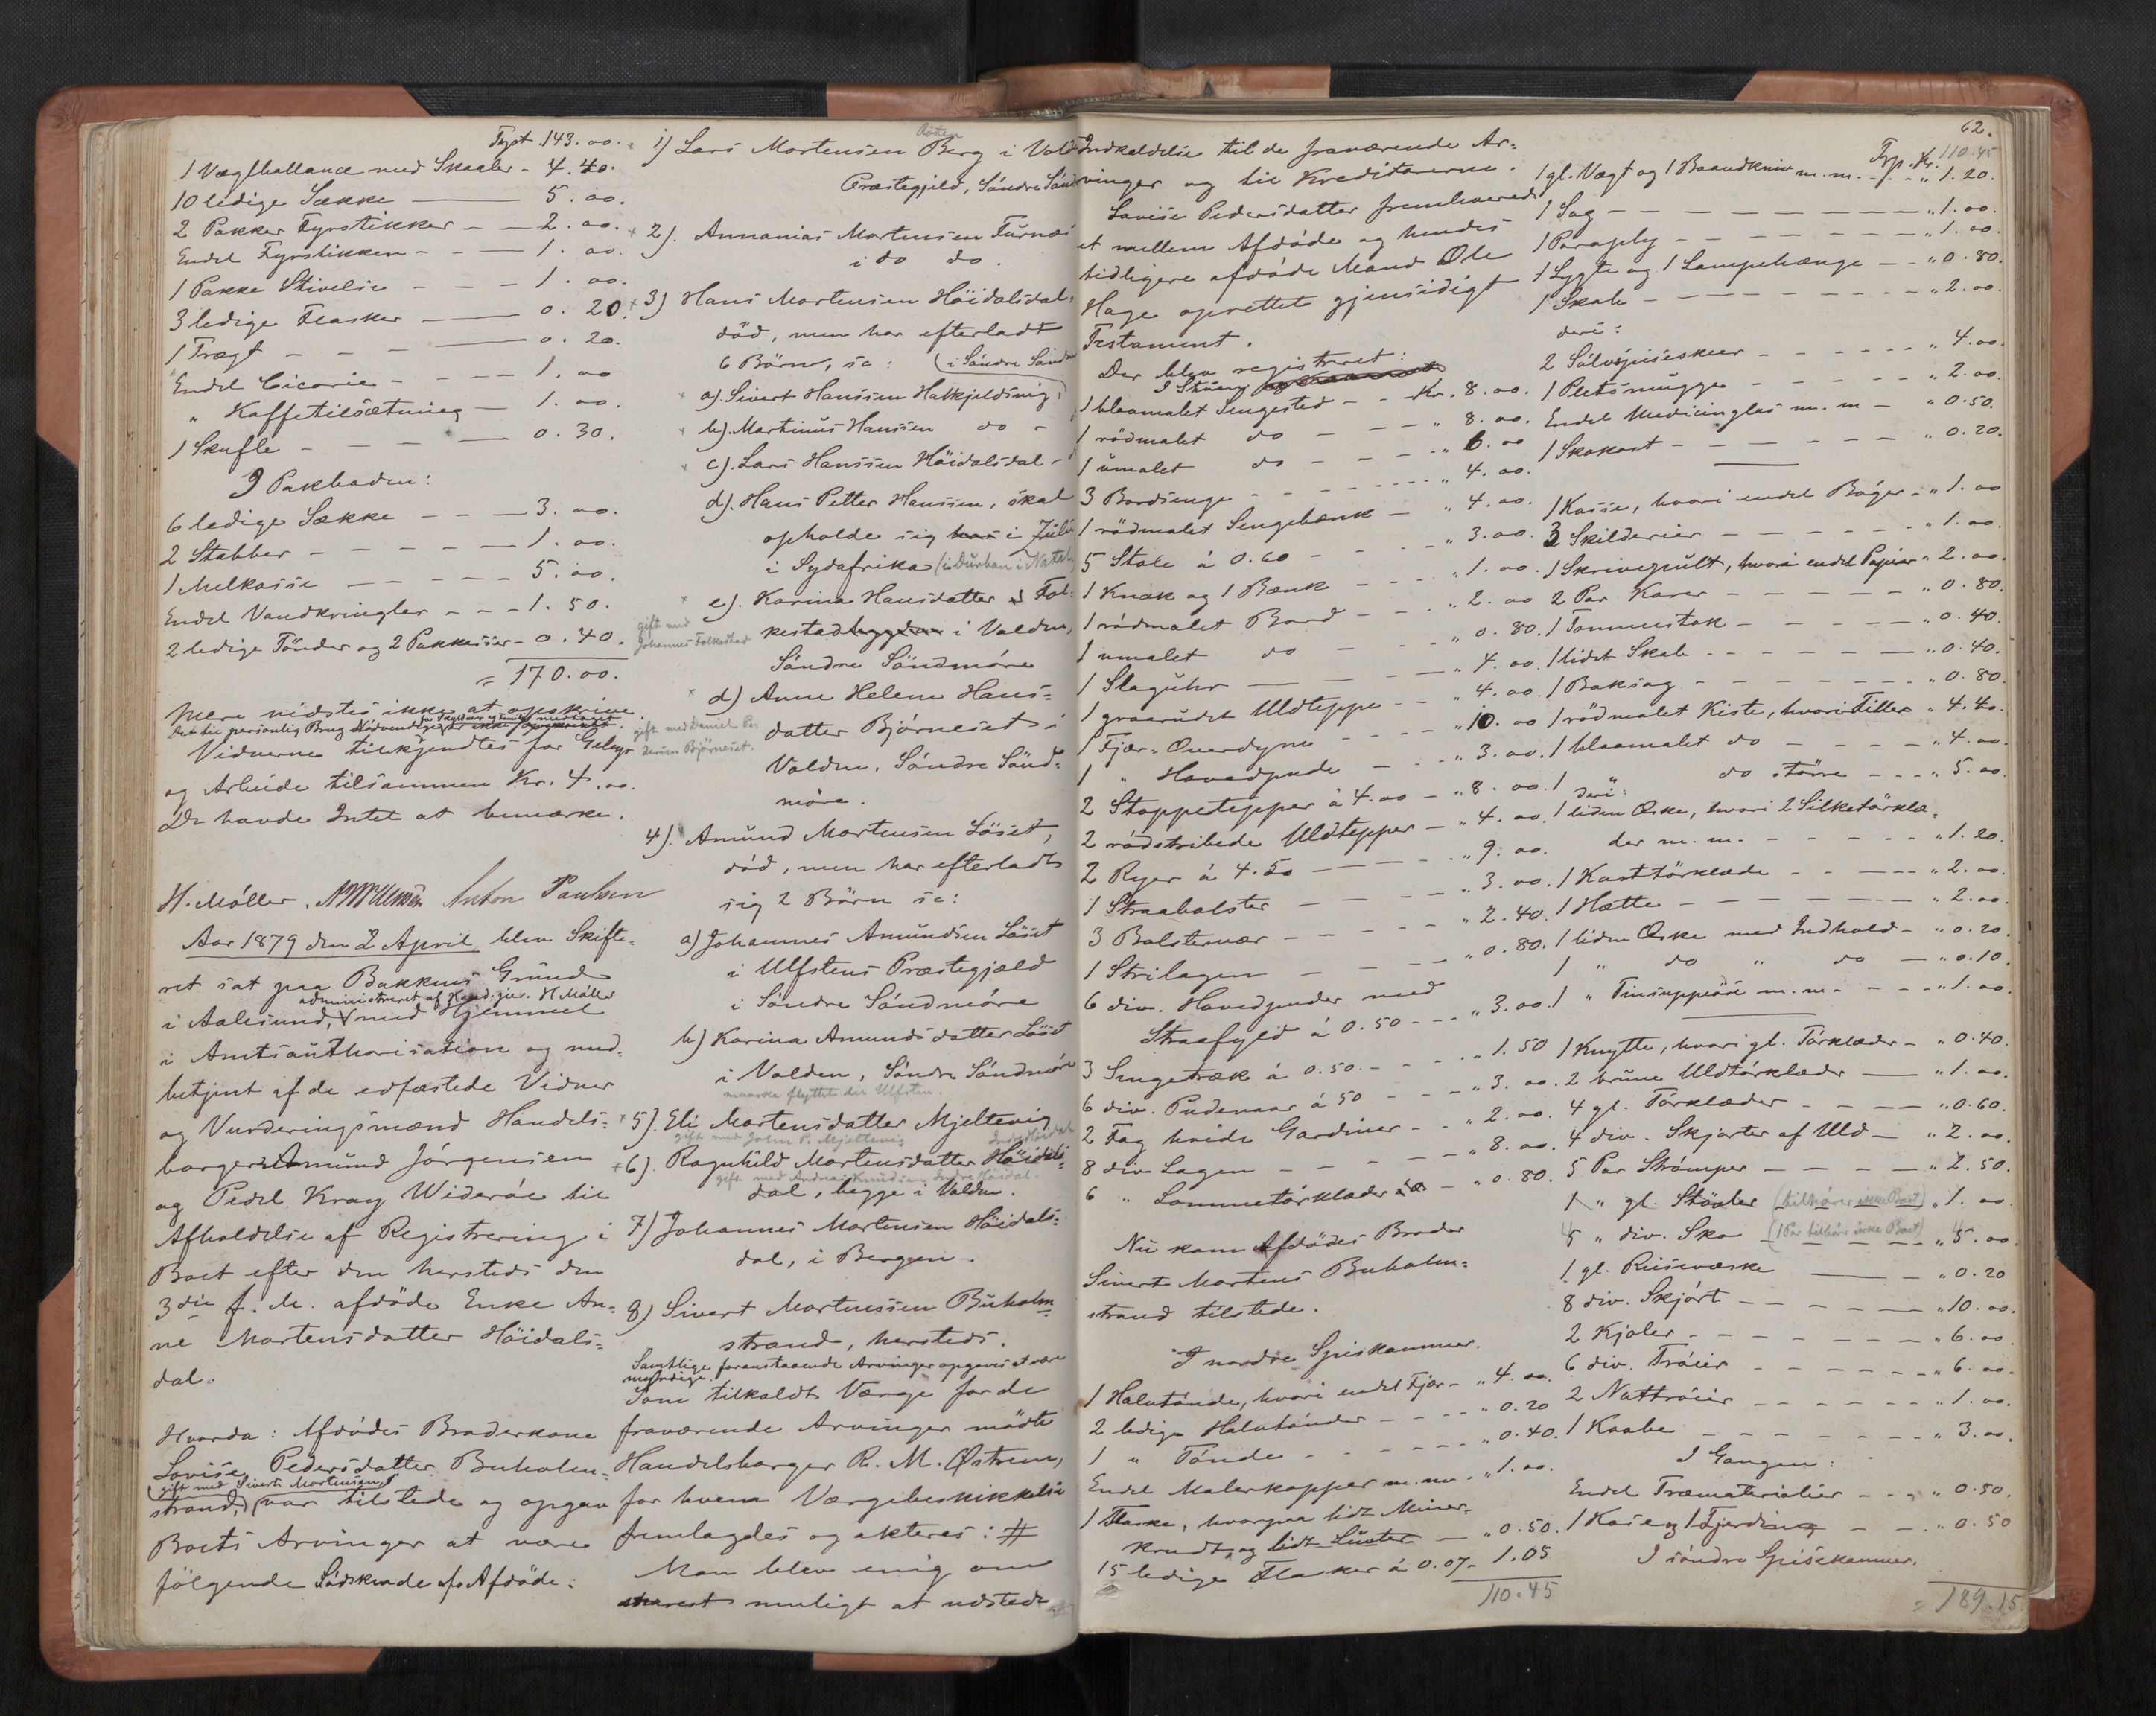 Trpt. 143.00.
1 Vægtballance med Skaaler - 4.40.
10 ledige Sække — 5.00.
2 Pakker Fyrstikker - — 2.00.
Endel Fyrstikker - - — 1.00
1 Pakke Stivelse - - — 1.00.
3 ledige Flasker — 0.20.
1 Tragt - - — 0.20.
Endel Cicorie - - — 1.00
" Kaffetilsætning — 1.00.
1 Skufle - - — 0.30.
I Pakboden:
6 ledige Sække - - — 3.00.
2 Stabber - - - — 1.00.
1 Melkasse — - - - 5.00.
Endel Vandkringler - - - 1.50.
2 ledige Tønder og 2 Pakkasser - 0.40.
= 170.00.
Mere vidstes ikke at opskrive.
Vidnerne tilkjendtes for Gebyr
og Arbeide tilsammen Kr. 4.00.
De havde Intet at bemærke.
H. Møller. Anton Paulsen
Aar 1879 den 2 April blev Skifte-
ret sat paa Bakkens Grund
administreret af Kand. jur. H Møller
i Aalesund, med Hjemmel
i Amtsauthorisation og med-
betjent af de edfæstede Vidner
og Vurderingsmænd Handels-
borger Amund Jørgensen
og Pedel Kray Widerøe til
Afholdelse af Registrering i
Boet efter den hersteds den
3die f. M. afdøde Enke An-
ne Martensdatter Høidals-
dal.
Hvorda: Afdødes Broderkone
Lovise Pedersdatter Buholm-
(gift med Sivert Martensen)
strand, var tilstede og opgav
Boets Arvinger at være
følgende Sødskende af Afdøde:
1) Lars Martensen Berg i Volden
Præstegjeld, Søndre Sønd
2). Annanias Martensen Furnæs
i do do.
3) Hans Martensen Høidalsdal,
død, men har efterladt
6 Børn, sc: (i Søndre Søndm
a). Sivert Hanssen Hatkjeldsvig,
b). Martinus Hanssen do -
c). Lars Hanssen Høidalsdal -
d). Hans Petter Hanssen, skal
opholde sig i Juli
i Sydafrika (i Durban i Natal
e). Karine Hansdatter Fol-
gift med
Johannes Folkestad
kestad i Volden,
Søndre Søndmøre
d) Anne Helene Hans-
gift med Daniel Pe
dersen Bjørneset.
datter Bjørneset i
Volden, Søndre Sønd-
møre.
4). Amund Martensen Løset,
død, men har efterladt
sig 2 Børn sc:
a) Johannes Amundsen Løset
i Ulfstens Præstegjæld
i Søndre Søndmøre
b) Karina Amundsdatter Løset
i Volden, Søndre Søndmøre
maaske flyttet til Ulfsten.
5). Eli Martensdatter Mjeltevig
gift med John P. Mjeltevig
6). Ragnhild Martensdatter Høidals-
gift med Andreas Knudsen Indre Høidal.
dal, begge i Volden.
7) Johannes Martensen Høidals-
dal, i Bergen.
8) Sivert Martenssen Buholm-
strand, hersteds.
Samtlige foranstaaende Arvinger opgaves at være
myndige.
Som tilkaldt Værge for de
fraværende Arvinger mødte
Handelsborger R. M. Østrem,
for hvem Værgebeskikkelse
fremlagdes og akteres: #
Man blev enig om
snarest muligt at udstede
62.
Indkaldelse til de fraværende Ar-
vinger og til Kreditorerne.
Lovise Pedersdatter fremleverede
et mellem Afdøde og hendes
tidligere afdøde Mand Ole
Hage oprettet gjensidigt
Testament.
Der blev registreret:
I Stuen
1 blaamalet Sengested - - Kr. 8.00.
1 rødmalet do - - - " 8.00.
1 umalet do - - - " 6.00
3 Bordsenge - - - " 4.00.
1 rødmalet Sengebænk — " 4.00.
5 Stole á 0.60 - - - " 3.00.
1 Knak og 1 Bænk - - - " 1.00.
1 rødmalet Bord - - - " 2.00
1 umalet do - - - " 0.80.
1 Slaguhr — - — " 4.00.
1 graarudet Uldteppe - - " 4.00.
1 Fjær-Overdyne - - - " 10.00
1 " Hovedpude — - - " 3.00.
2 Stoppetepper á 4.00 — " 8.00.
2 rødstribede Uldtepper — " 4.00.
2 Ryer á 4.50 — - - " 9.00.
1 Straabolster — - - " 3.00.
3 Bolstervær - - - " 2.40.
1 Strilagen - - - " 0.80.
6 div. Hovedpuder med
Straafyld á 0.50 - - - " 3.00.
3 Sengetræk á 0.50. - - - " 1.50
6 div. Pudevaar á 50 - - - " 3.00.
2 Fag hvide Gardiner - - " 2.00.
8 div Lagen - - - " 8.00.
6 " Lommetørklæder — " 0.80.
Nu kom Afdødes Broder
Sivert Martens Buholm-
strand tilstede.
I nordre Spiskammer.
1 Halvtønde, hvori endel Fjær - " 4.00.
2 ledige Halvtønder - - - " 0.20
1 " Tønde - - - " 0.40.
Endel Malerkopper m.m. - " 1.00.
1 Flaske, hvorpaa lidt Miner-
krudt, og lidt Lunter — " 0.50.
15 ledige Flasker á 0.07 - 1.05
110.45
Trp. Kr. 110.45
1 gl. Vægt og 1 Baandkniv m.m. - " 1.20.
1 Sag - - - " 1.00.
1 Paraply - - - " 1.00.
1 Lygte og 1 Lampehænge — " 0.80.
1 Skab - - - " 2.00.
deri:
2 Sølvspiseskeer - - - " 4.00.
1 Pletsmugge - - - " 2.00.
Endel Medicinglas m.m — " 0.50.
1 Skokost - - - " 0.20.
1 Kasse, hvori endel Bøger - " 1.00
3 Skilderier - - - " 1.00.
1 Skrivepult, hvori endel Papirer " 2.00.
2 Par Karer - - - " 0.80.
1 Tommestok - - - " 0.40.
1 lidet Skab - - - " 0.40.
1 Baksag - - - " 0.80.
1 rødmalet Kiste, hvori Filler " 4.40.
1 blaamalet do - - - " 4.00.
1 do større - - - " 5.00.
deri:
1 liden Æske, hvori 2 Silketørklæ-
der m.m. - - - " 1.20.
1 Kasttørklæde - - — " 2.00.
1 Hætte - - - " 2.00.
1 liden Æske med Indhold - " 0.20.
1 " do " do — " 0.10.
1 " Tinsuppeøse m.m. - - " 1.00.
1 Knytte, hvori gl. Tørklæder - " 0.40.
2 brune Uldtørklæder — " 1.00.
4 gl. Tørklæder - - — " 0.60.
4 div. Skjorter af Uld — " 2.00.
5 Par Strømper — - — " 2.50.
1 " gl. Støvler (tilhører ikke Boet) " 1.00
" div. Sko (1 Par tilhører ikke Boet) " 5.00.
1 gl. Reisevæske — - " 0.20
8 div. Skjørt - - - " 10.00.
2 Kjoler - - - " 6.00
6 div. Trøier - - - " 6.00.
2 Nattrøier - - - " 1.00.
1 Kaabe - - - " 3.00.
I Gangen:
Endel Træmaterialier - - - " 0.50.
1 Kase og 1 Fjerding - - " 0.50
I søndre Spisekammer.
= 189.15